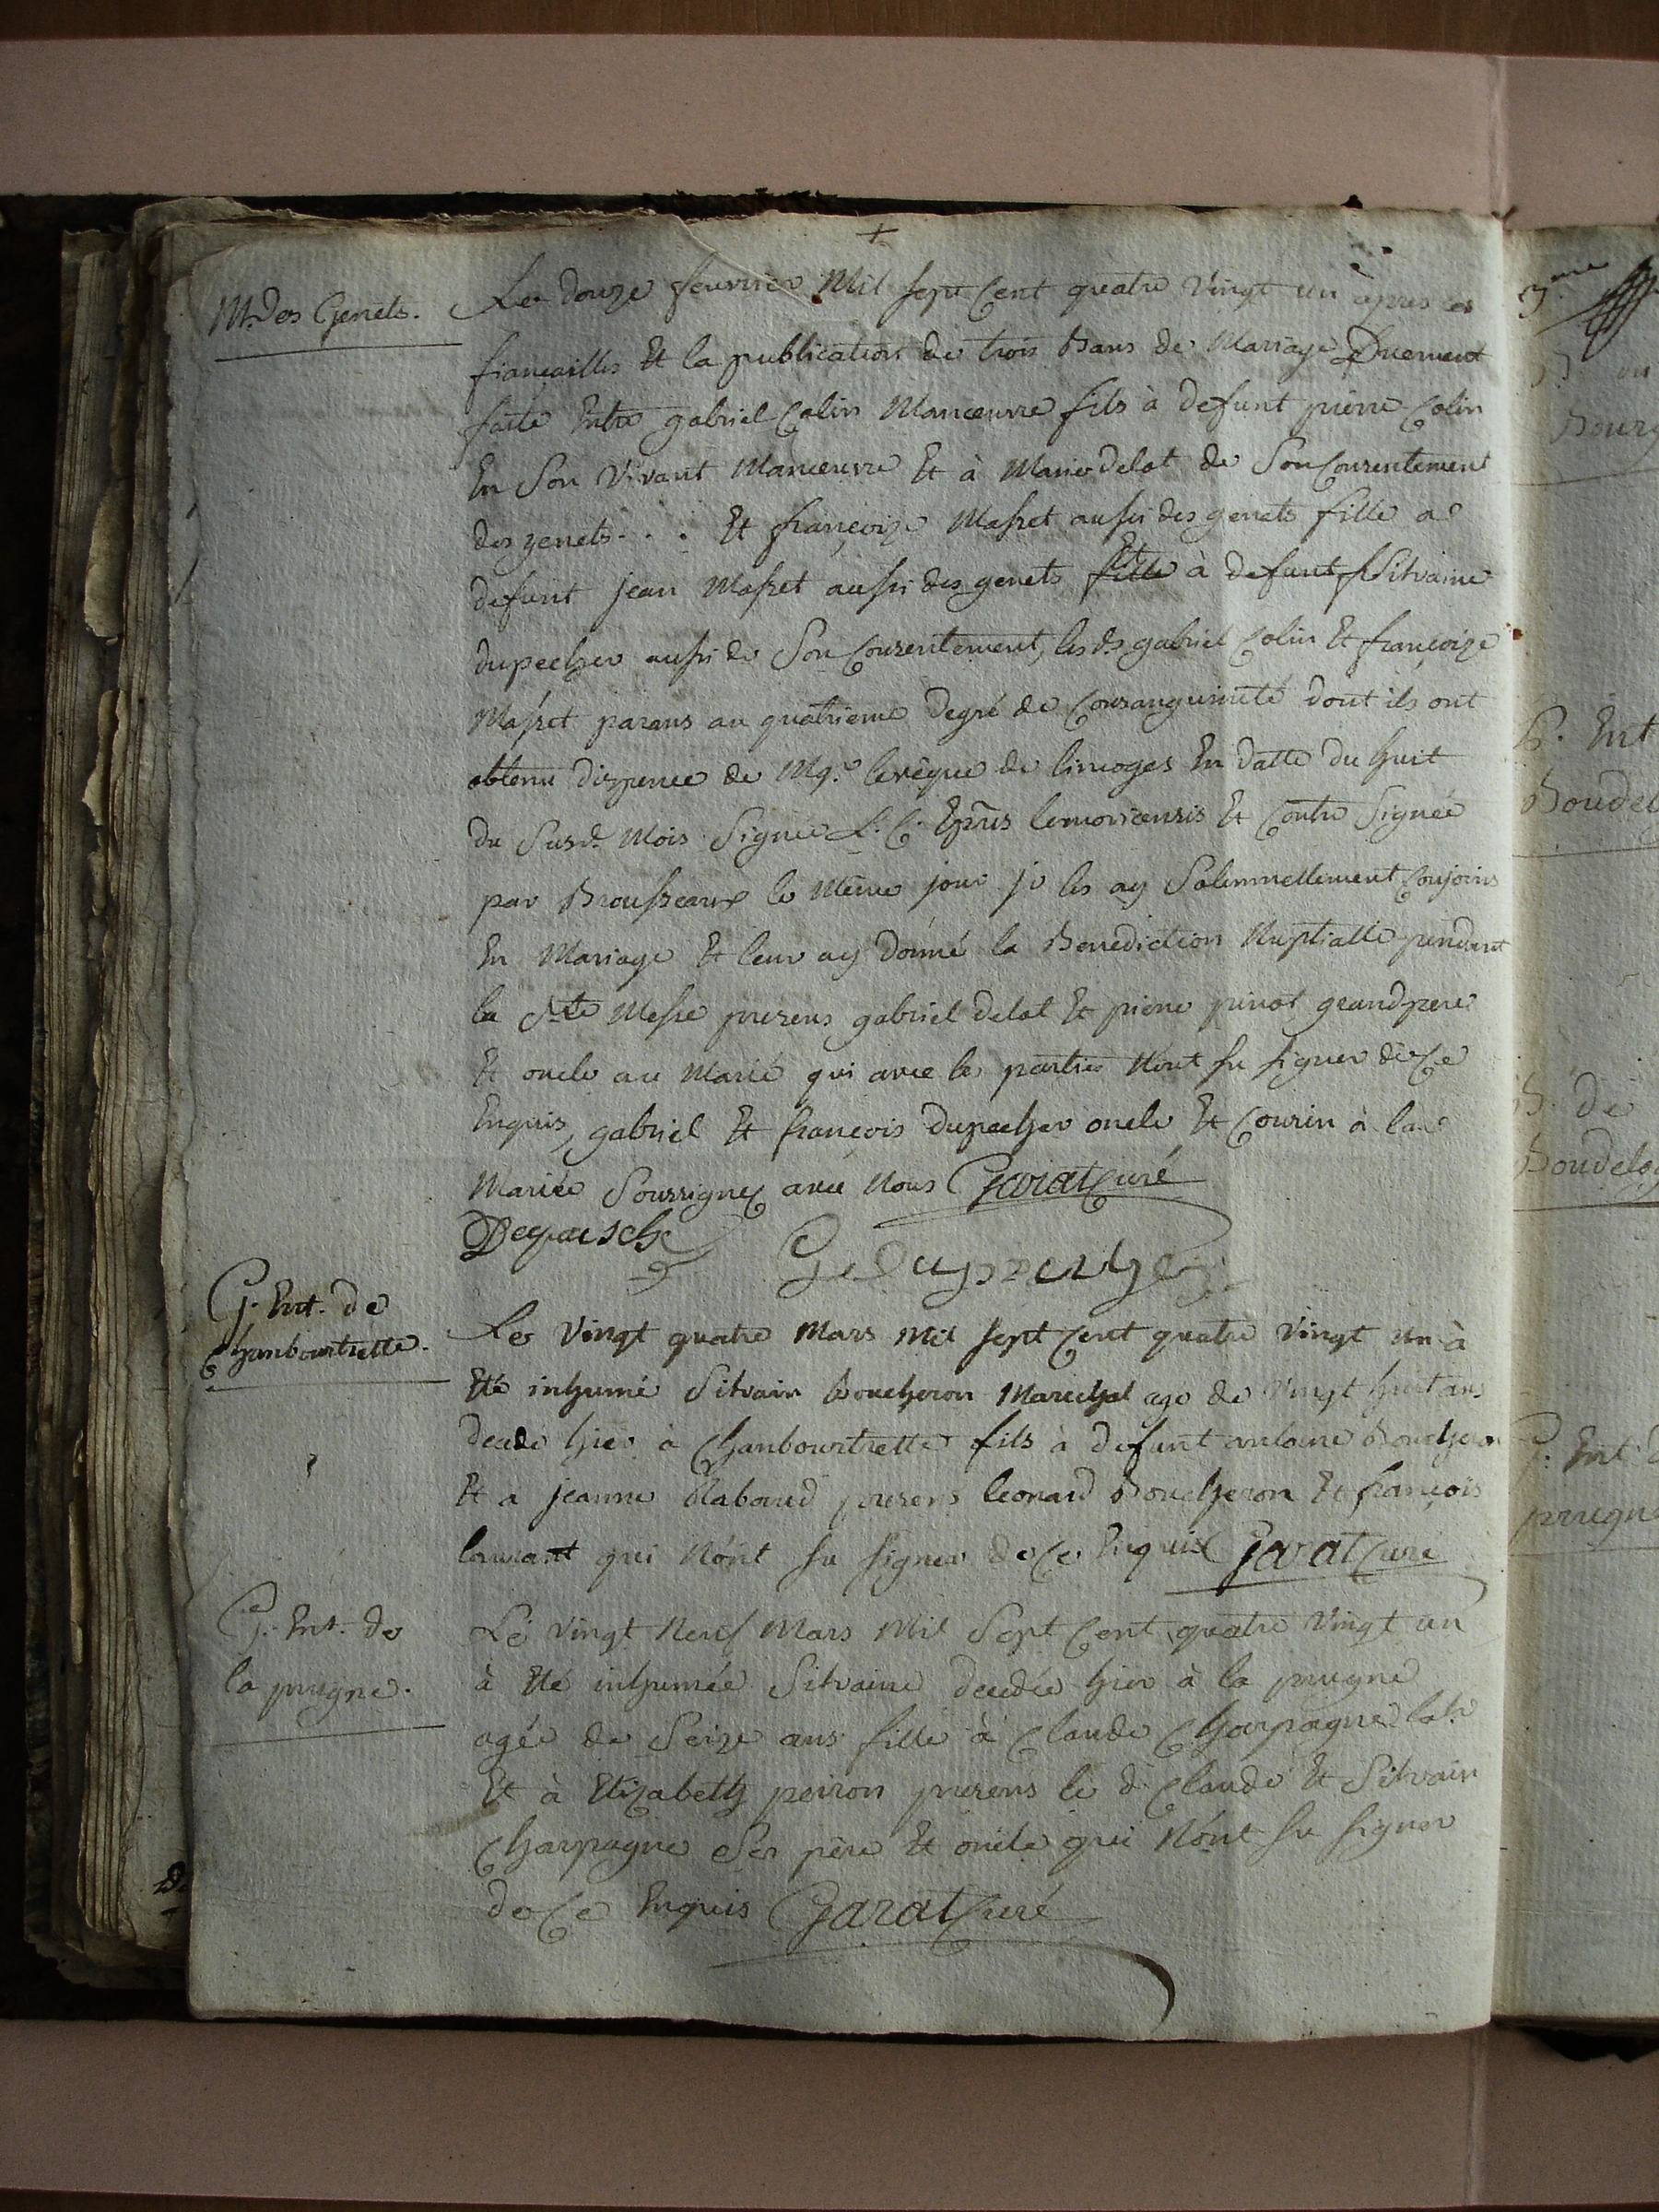 +
M. des Genets.
Le douze fevrier Mil sept Cent quatre Vingt un après les
fiançailles Et la publication de trois Bans de Mariage Duement
faite Entre gabriel Colin Manœuvre fils à defunt pierre Colin
En Son Vivant Manœuvre Et à Marie delot de Son Consentement
des genets . . . Et françoize Masset aussi des genets fille a
defunt jean Masset aussi des genets fille Et à defunt Silvaine
dupecher aussi de Son Consentement, les ds gabriel Colin Et françoize
Masset parans au quatrieme degré de Consanguinité dont ils ont
obtenu dispence de Mgr. leveque de limoges En datte du huit
du Susd. Mois Signée L. C. Epūs lemovicensis Et Contre Signée
par Brousseaux le Même jour je les ay Solemnellement Conjoins
En Mariage Et leur ay donné la Benediction Nuptialle pendant
la Ste Messe presens gabriel delot Et pierre pinot grand pere
Et oncle au Marié qui avec les parties Nont su signer de Ce
Enquis, gabriel Et françois dupecher oncle Et Cousin à la
Mariée Soussignez avec Nous Garat Curé
Depaische G. Dupeucher
G. Ent. de
Chanbourtrette.
Le Vingt quatre Mars Mil sept Cent quatre Vingt un à
Eté inhumé Silvain boucheron Marechal age de Vingt huit ans
decédé hier à Chanbourtrette fils à defunt antoine Boucheron
Et a jeanne Rabaud presens leonard Boucheron Et françois
laurant qui Nont su signer de Ce Enquis Garat Curé
G. Ent. de
la prugne.
Le Vingt Neuf Mars Mil Sept Cent quatre Vingt un
à Eté inhumée Silvaine decedée hier à la prugne
agée de Seize ans fille à Claude Charpagne labr
Et à Elizabeth peiron presens le d. Claude Et Silvain
Charpagne Ses père Et oncle qui Nont su signer
de Ce Enquis Garat Curé
3.me
Bourg
Ent
Boudel
de
Boudelog
Ent d
prugne